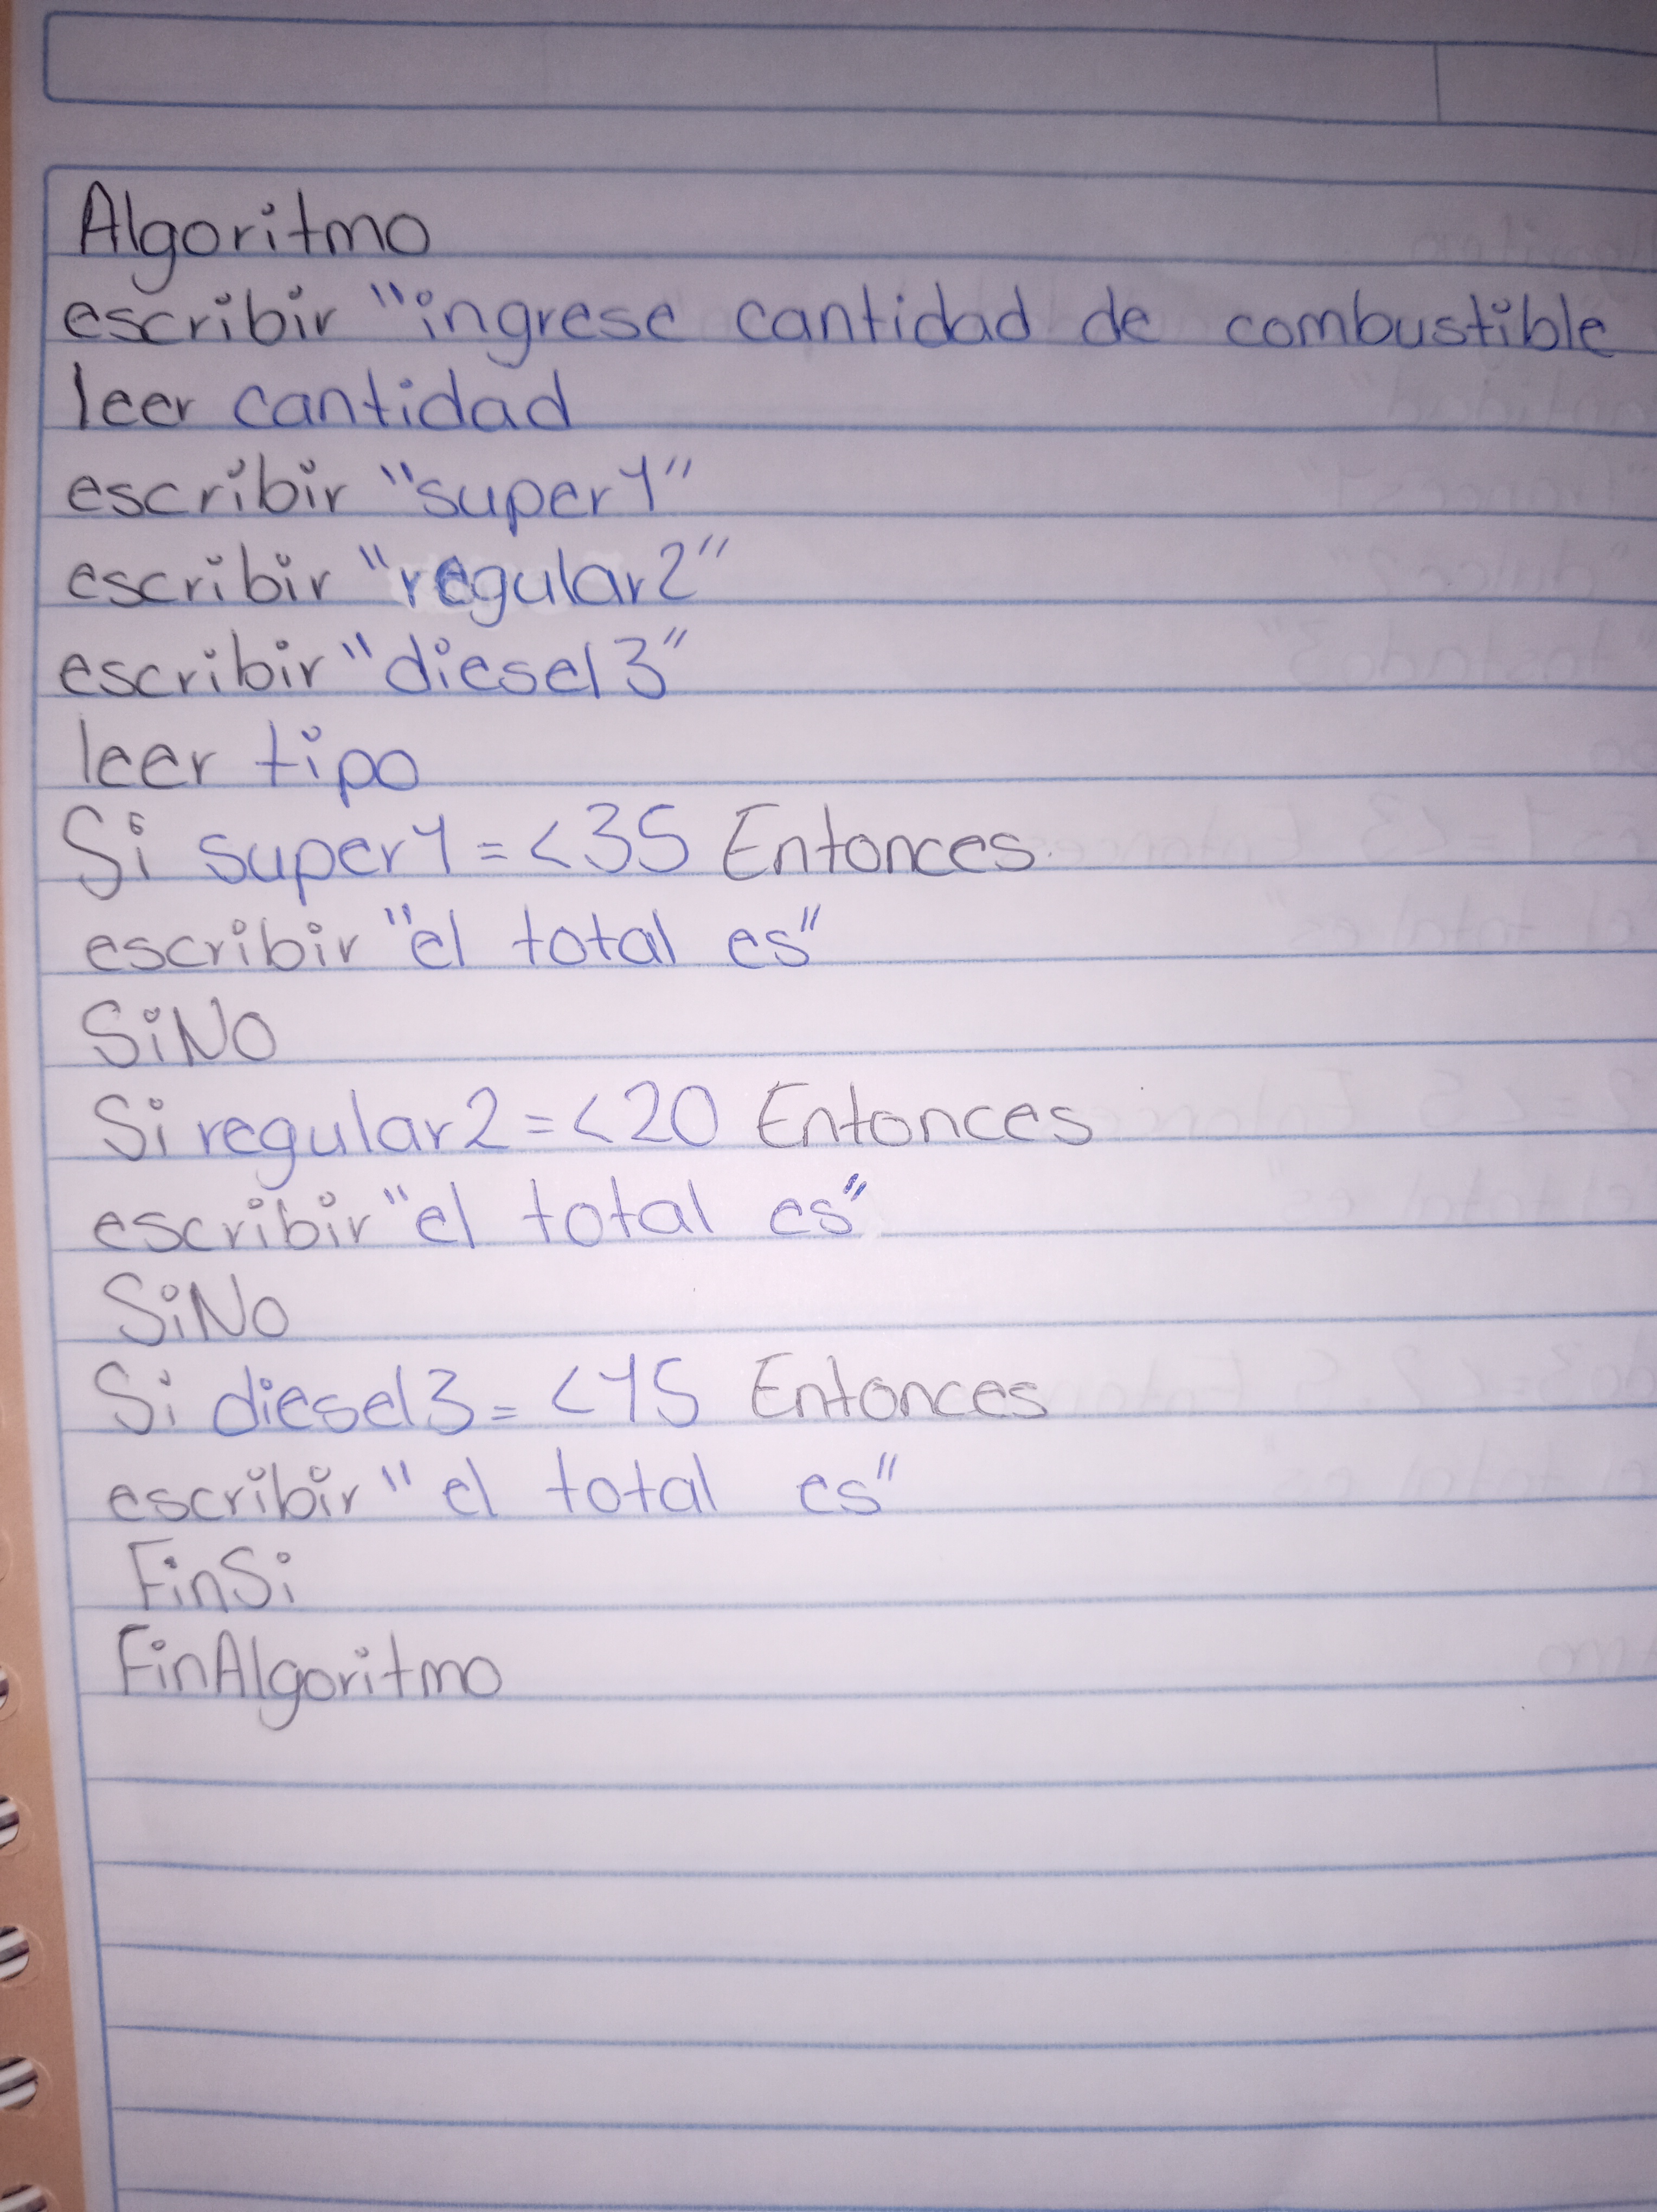 Algoritmo
escribir "ingrese cantidad de combustible
leer cantidad
escribir "super1"
escribir "regular2"
escribir "diesel3"
leer tipo
Si super1=<35 Entonces
escribir "el total es"
SiNo
Si regular2=<20 Entonces
escribir "el total es"
SiNo
Si diesel3=<15 Entonces
escribir "el total es"
FinSi
FinAlgoritmo